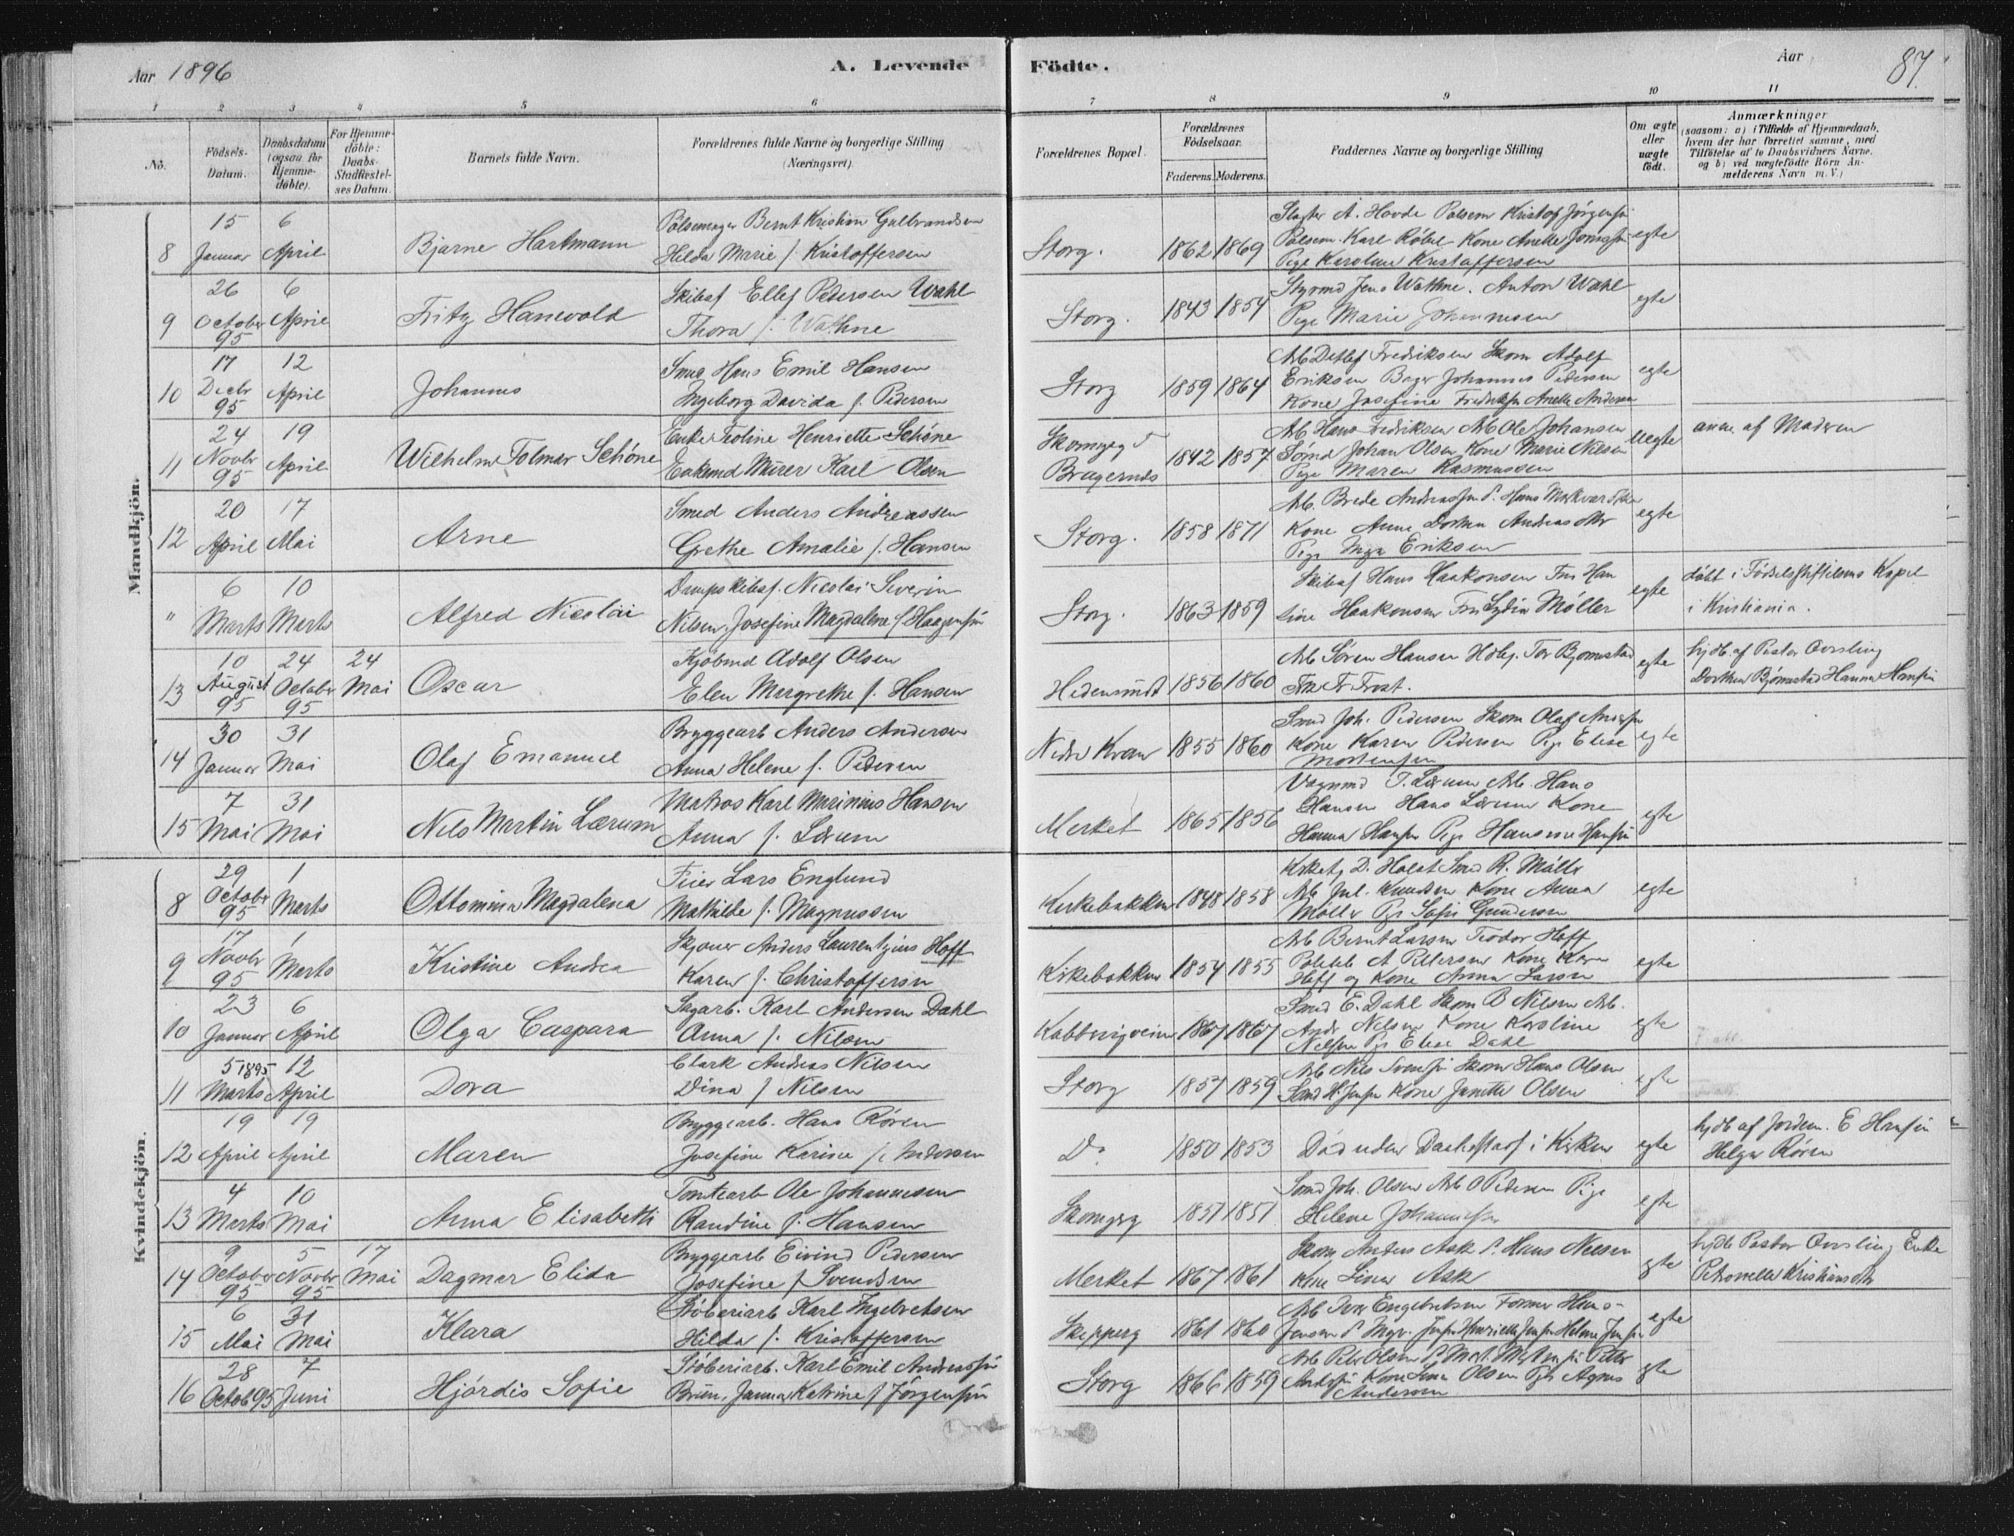 Aar 1896
A. Levende Födte.
Aar
87.
1 2 3 4 5 6 7 8 9 10 11
No.
Födsels-Datum.
Daabsdatum (ogsaa for Hjemme-döbte).
For Hjemme-döbte: Daabs-Stadfæstel-ses Datum.
Barnets fulde Navn.
Forældrenes fulde Navne og borgerlige Stilling (Næringsvei).
Forældrenes Bopæl.
Forældrenes Födselsaar.
Faderens. Moderens.
Faddernes Navne og borgerlige Stilling
Om ægte eller uægte födt.
Anmærkninger
(saasom: a) i Tilfælde af Hjemmedaab,
hvem der har forrettet samme, med
Tilföielse af to Daabsvidners Navne.
og b) ved uægtefödte Börn An-
melderens Navn m. V.)
Mandkjön.
8 15 Januar 6 April Bjarne Hartmann
Pølsemager Bernt Kristian Gulbrandsen
Hilda Marie f. Kristoffersen
Storg. 1862 1869
Slagter A. Hovde Pølsem Kristof Jørgensen
Pølsem. Karl Røbel Kone Anette
Pige Karoline Kristoffersen
egte
9 26 October 95 6 April Fritz Hanvold
Skibsf Ellef Pedersen Wahl
Thora f. Wathne
Storg. 1843 1854
Styrmd Jens Wathne. Anton Wahl
Pige Marie Johannessen
egte
10 17 Decbr 95 12 April Johannes
Hans Emil Hansen
Ingeborg Davida f. Pedersen
Storg 1859 1864
Arb Detlef Fredriksen Skom Adolf
Eriksen Bager Johannes Pedersen
Kone Josefine Anette Andersen
egte
11 24 Novbr 95 19 April Wilhelm Tolmar Schöne
Enke Henriette Schöne
Enkemd Murer Karl Olsen
Bragernes 1842 1857
Arb Hans Fredriksen Arb Ole Johansen
Sømd Johan Olsen Kone Marie Nilsen
Pige Maren Rasmussen
Uegte
anm. af Moderen
12 20 April 17 Mai Arne
Smed Anders Andreassen
Grethe Amalie f. Hansen
Storg. 1858 1871
Arb. Brede Hans
Kone Anne Dorthea
Pige Inga Eriksen
egte
" 6 Marts 10 Marts Alfred Nicolai
Dampskibsf. Nicolai Severin
Nilsen, Josefine Magdalene f. Haagensen
Storg. 1863 1859
Skibsf Hans Haakonsen Fru Han
sine Haakonsen Fru Lydia Møller
egte
døbt i Fødselsstiftelsens Kapel
i Kristiania.
13 10 August 95 24 October 95 24 Mai Oscar
Kjøbmd Adolf Olsen
Elen Margrethe f. Hansen
Hedensund 1856 1860
Arb Søren Hansen Tor Bjørnstad
Fr Frost.
egte
hjdb af Pastor
Dorthea Bjørnstad Hanna Hansen
14 30 Januar 31 Mai Olaf Emanuel
Bryggearb Anders Andersen
Anna Helene f. Pedersen
Nedre Kvan 1855 1860
Smed Joh. Pedersen Skom Olaf
Kone Karen Pedersen Pige Elise
Mortensen
egte
15 7 Mai 31 Mai Nils Martin Lærum
Matros Karl Marinius Hansen
Anna f. Lærum
Merket 1865 1856
Vognmd T. Lærum Arb. Hans
Hansen Hans Lærum Kone
Hanna Hansen Pige Hansine Hansen
egte
Kvindekjön.
8 29 October 95 1 Marts Ottomina Magdalena
Feier Lars Englund
Mathilde f. Magnussen
Kirkebakken 1848 1858
Smd R. Møller
Arb Jul. Knudsen Kone Anna
Møller Pige Sofie Gundersen
egte
9 17 Novbr 95 1 Marts Kristine Andrea
Anders Laurentzius Hoff
Karen f. Christoffersen
Kirkebakken 1854 1855
Arb Bernt Larsen Teodor Hoff
A Pettersen Kone
Hoff og Kone Anna Larsen
egte
10 23 Januar 6 April Olga Caspara
Sagarb. Karl Andersen Dahl
Anna f. Nilsen
1867 1867
Smd E. Dahl Skom B Nilsen Arb.
Andr Nilsen Kone Karoline
Nilsen Pige Elise Dahl
egte
11 5 Marts 1895 12 April Dora
Clark Andreas Nilsen
Dina f Nilsen
Storg 1857 1859
Arb Nils Svensen Skom Hans Olsen
Smd Kone Janette Olsen
egte
12 19 April 19 April Maren
Bryggearb. Hans Røren
Josefine Karine f. Andersen
Do 1850 1853
Død uden i Kirken
egte
hjdb af Jordem. E Hansen
Helga Røren
13 4 Marts 10 Mai Anna Elisabeth
Tomtearb Ole Johannesen
Randine f. Hansen
Skomgrg 1851 1851
Smd Joh. Olsen Arb O Pedersen Pige
Helene Johannesen
egte
14 9 October 95 5 Novbr 95 17 Mai Dagmar Elida
Bryggearb Eivind Pedersen
Josefine f Svendsen
Merket 1867 1861
Skom Anders Ask Hans Nilsen
Kone Ask
egte
hjdb Pastor Enke
Petronelle
15 6 Mai 31 Mai Klara
Støberiarb Karl Ingebretsen
Hilda f. Kristoffersen
Skipperg 1861 1860
Arb Iver Engebretsen Former Hans
Jensen
egte
16 28 Octob 95 7 Juni Hjördis Sofie
Støberiarb. Karl Emil Andreassen
Brun, Janna Katrine f Jörgensen
Storg 1866 1859
Arb Peter Olsen Peter
Kone Olsen Pige Agnes
Andersen
egte